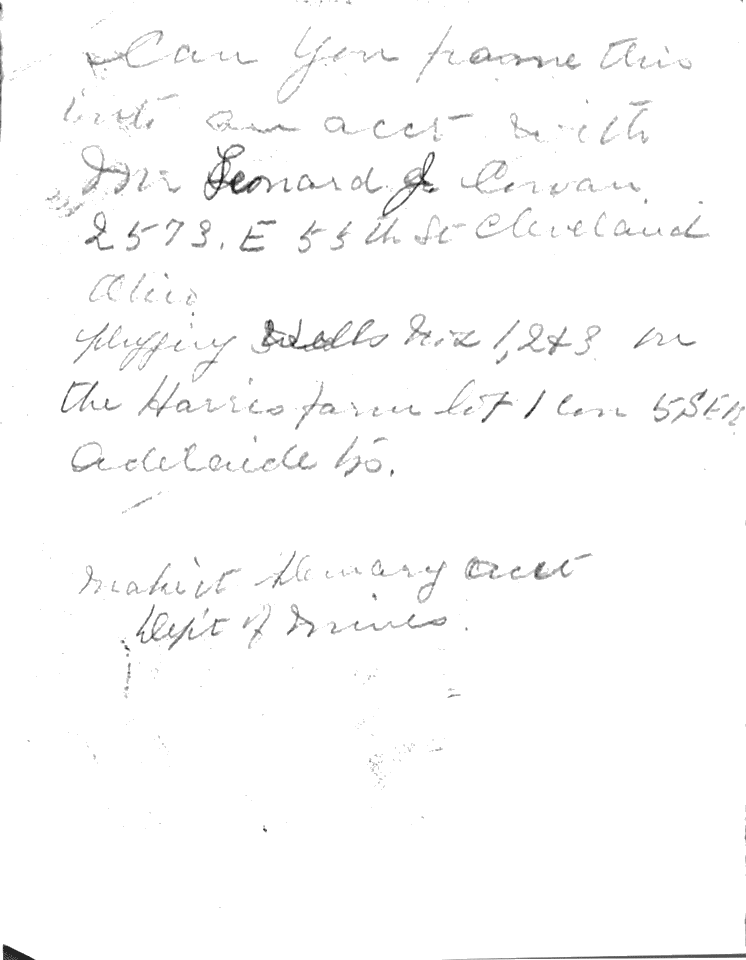 Can you frame this
into an acct with
Mr Leonard J. Cowan
2573. E 55th St Cleveland
Ohio
plugging wells Nos 1, 2 & 3 on
the Harris farm lot 1 Con 5 SER
Adelaide
make it acct
Dept of Mines.